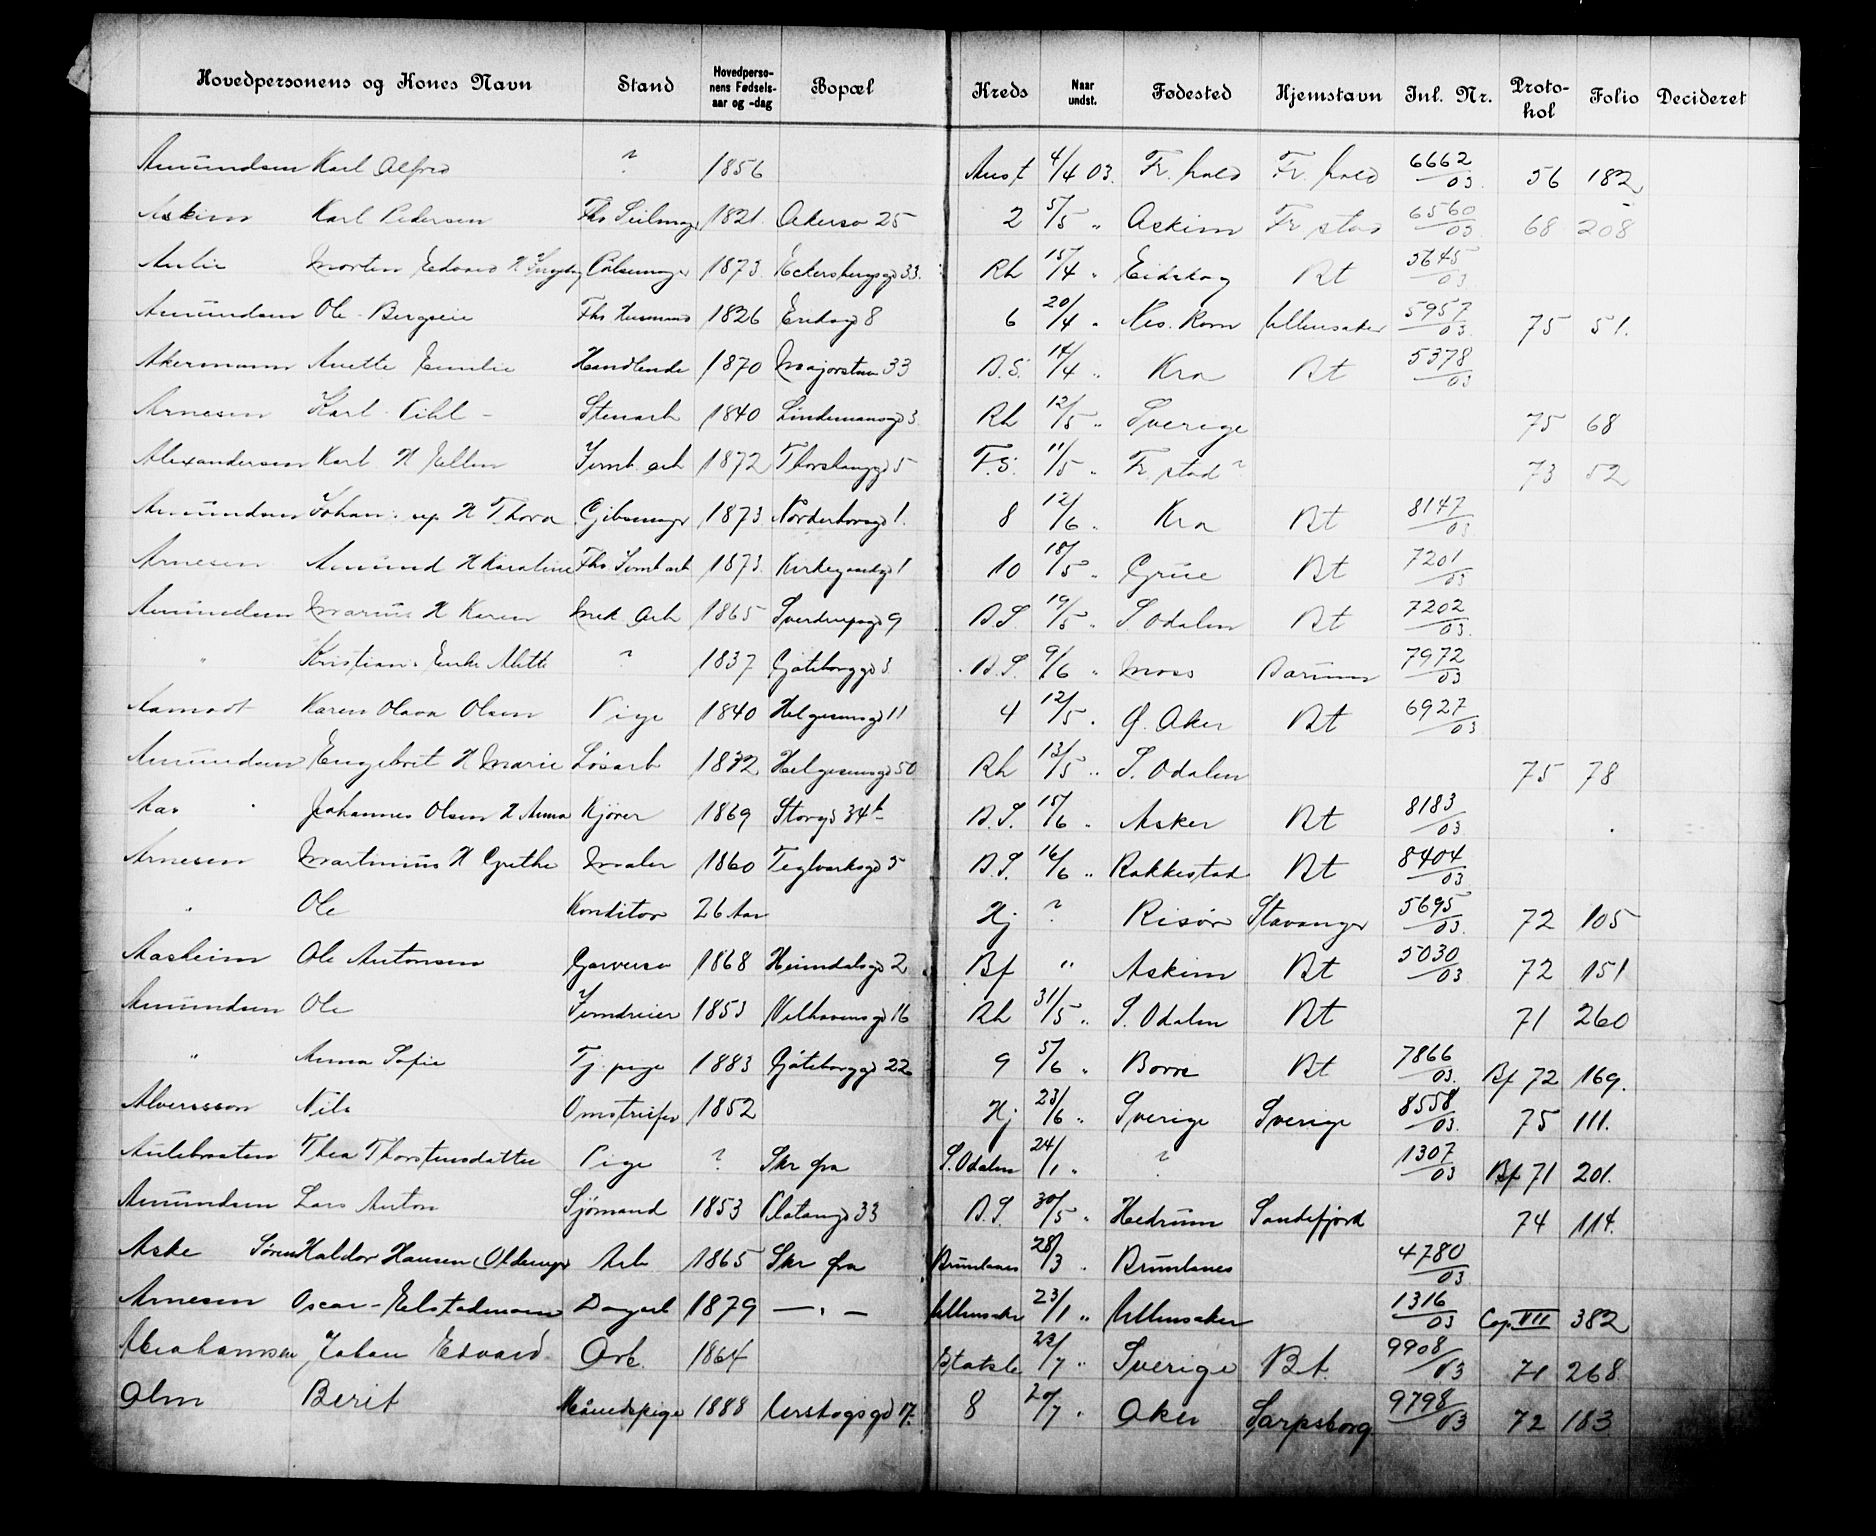 Hovedpersonens og Kones Navn Stand Hovedperso-nens Fødsels-aar og -dag Bopæl Kreds Naar undst. Fødested Hjemstavn Inl. Nr. Proto-kol Folio Decideret
Amundsen Karl Alfred ? 1856 4/4 03. Fr. hald Fr. hald 6662/03 56 182
Askim Karl Pedersen 1821 Akersv 25 2 5/5 " Askim Fr stad 6560/03 68 208
Aulie Morten Edvard 1873 Eckersbergsgd 33. Rh 15/4 " Eidskog Bt 5645/03
Amundsen Ole Bergseie Fhv Husmand 1826 8 6 20/4 " Nes. Rom Ullensaker 5957/03 75 51.
Akermann Anette Emilie Handlende 1870 Majorstuen 33 B.S. 14/4 " Kra Bt 5378/03
Arnesen Karl Pihl - Stenarb 1840 Lindemansgd 3 Rh 12/5 " Sverige 75 68
Alexandersen Karl H Ellen Jernb. arb 1872 5 F.S. 11/5 " Fr. stad ? 73 52
Amundsen Johan H Thora Gibsmager 1873 1. 8 12/6 " Kra Bt 8147/03
Arnesen Amund H Karoline Fhv Jernb arb 1873. Kirkegaardsgd 1 10 18/5 " Grue Bt 7201/03
Amundsen Marius H Karen Mek Arb 1865 Sverdrupsgd 9 B.S. 19/5 " S. Odalen Bt 7202/03
" Kristian Enke Mette ? 1837 Gøteborggd 3 B.S. 9/6 " Moss Bærum 7972/03
Aamodt Karen Olava Olsen Pige 1840 Helgesensgd 11 4 12/5 " Ø. Aker Bt 6927/03
Amundsen Engebret H Marie Løsarb 1832 Helgesensgd 50 Rh 13/5 " S. Odalen 75 78
Aas Johannes Olsen H Anna Kjører 1869 Storgd 34b B.S. 15/6 " Asker Bt 8183/03
Arnesen Martinius H Grethe Maler 1860 Teglverksgd 5 B.S. 16/6 " Rakkestad Bt 8404/03
" Ole Konditor 26 Aar Hj ? Risør Stavanger 5695/03 72 105
Aasheim Ole Antonsen Garversv 1868 Heimdalsgd 2 Bf " Askim Bt 5030/03 72 151
Amundsen Ole Jerndreier 1853 Velhavensgd 16 Rh 31/5 " S. Odalen Bt 71 260
" Anna Sofie Tj. pige 1883 Gøteborggd 22 9 5/6 " Borre Bt 7866/03 Bf 72 169.
Alversson Nils Omstreifer 1852 Hj 23/6 " Sverige Sverige 8558/03 75 111.
Aulebraaten Thea Thorstensdatter Pige ? Skr fra S. Odalen 24/1 " ? 1307/03 Bf 71 201.
Amundsen Lars Anton Sjømand 1853 Platougd 33 B.S. 30/5 " Hedrum Sandefjord 74 114.
Aske Søren Haldor Hansen Arb 1865 Skr fra Brunlanes 28/3 " Brunlanes 4780/03
Arnesen Oscar - Elstadmoen Dagarb 1879 — " — Ullensaker 23/1 " Ullensaker 1316/03 Cop. VII 382
Abrahamsen Johan Edvard Arb. 1864 Statsb 22/7 " Sverige Bt. 9908/03 71 268
Alm Berit Månedspige 1888 17. 8 20/7 " Aker Sarpsborg 9798/03 72 183